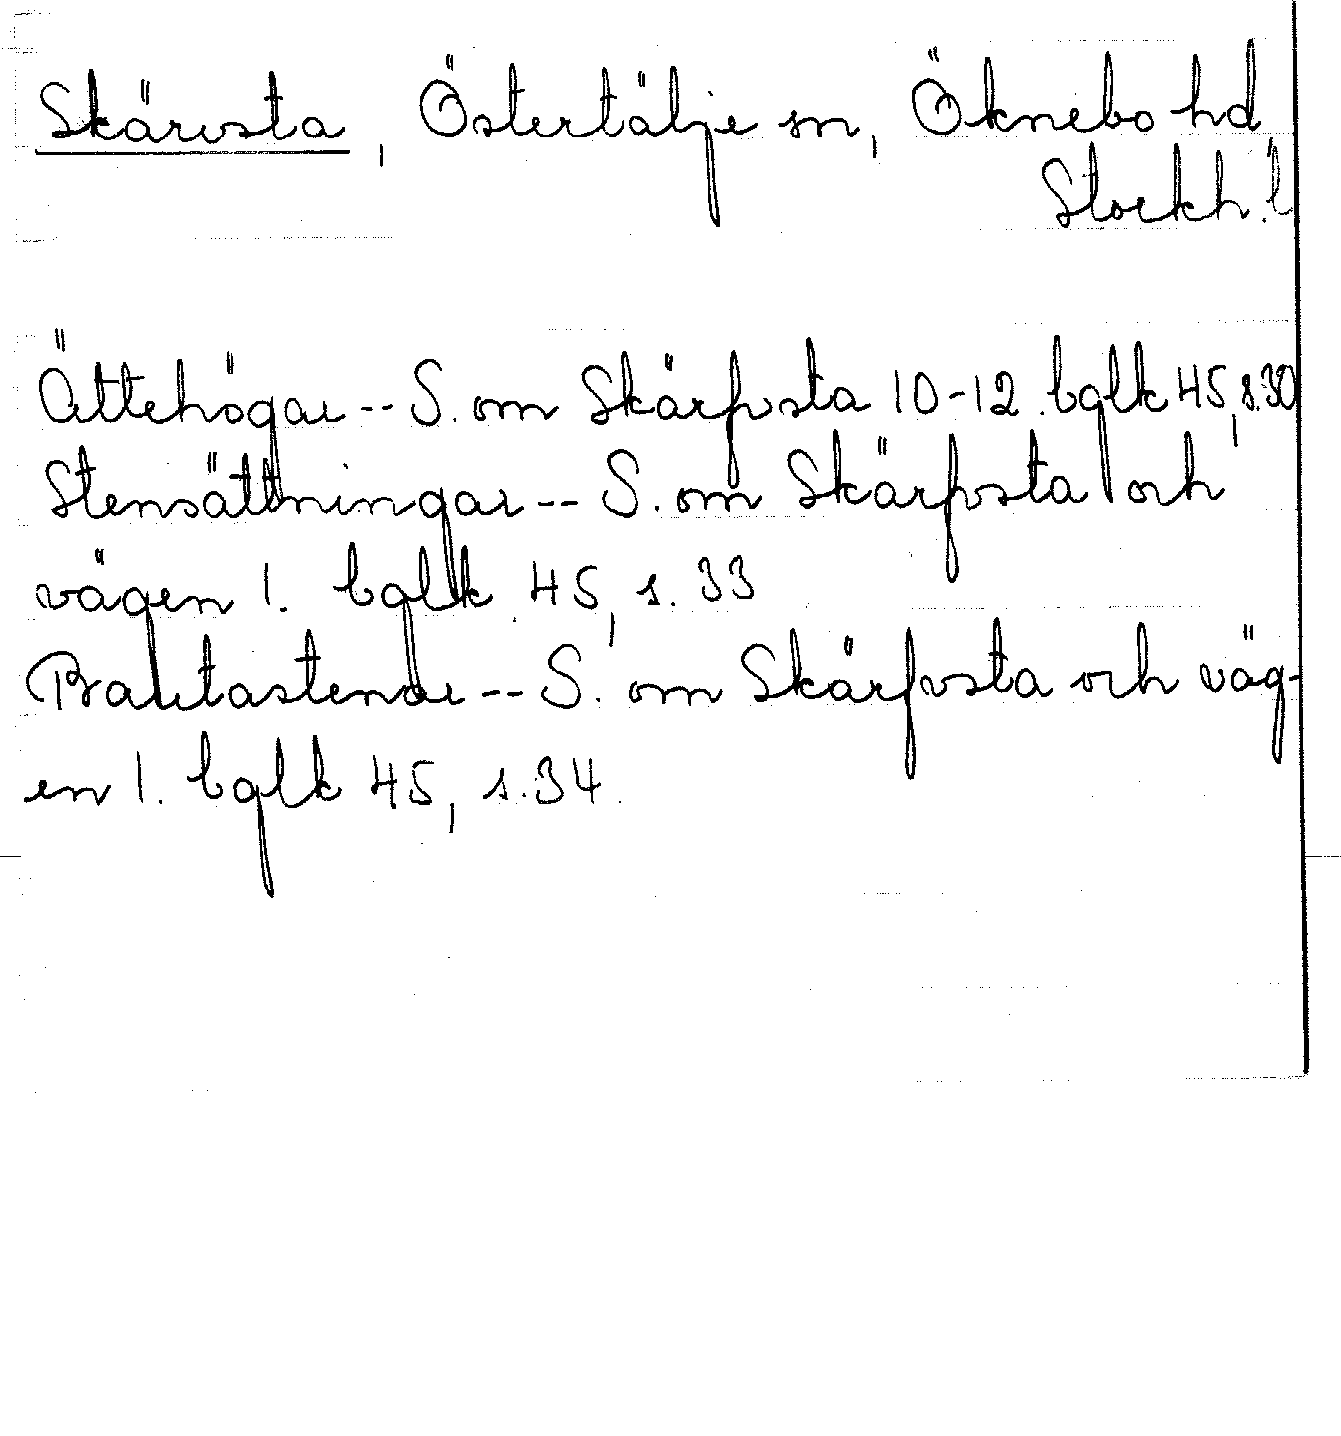 Skärvsta, Östertälje sn, Öknebo hd
Stockh. l
Ättehögar -- S. om Skärfvsta 10-12. bglk 45, s.30
Stensättningar -- S. om Skärfvsta och
vägen 1. bglk 45, s. 33
Bautastenar -- S. om Skärfvsta och väg-
en 1. bglk 45, s. 34